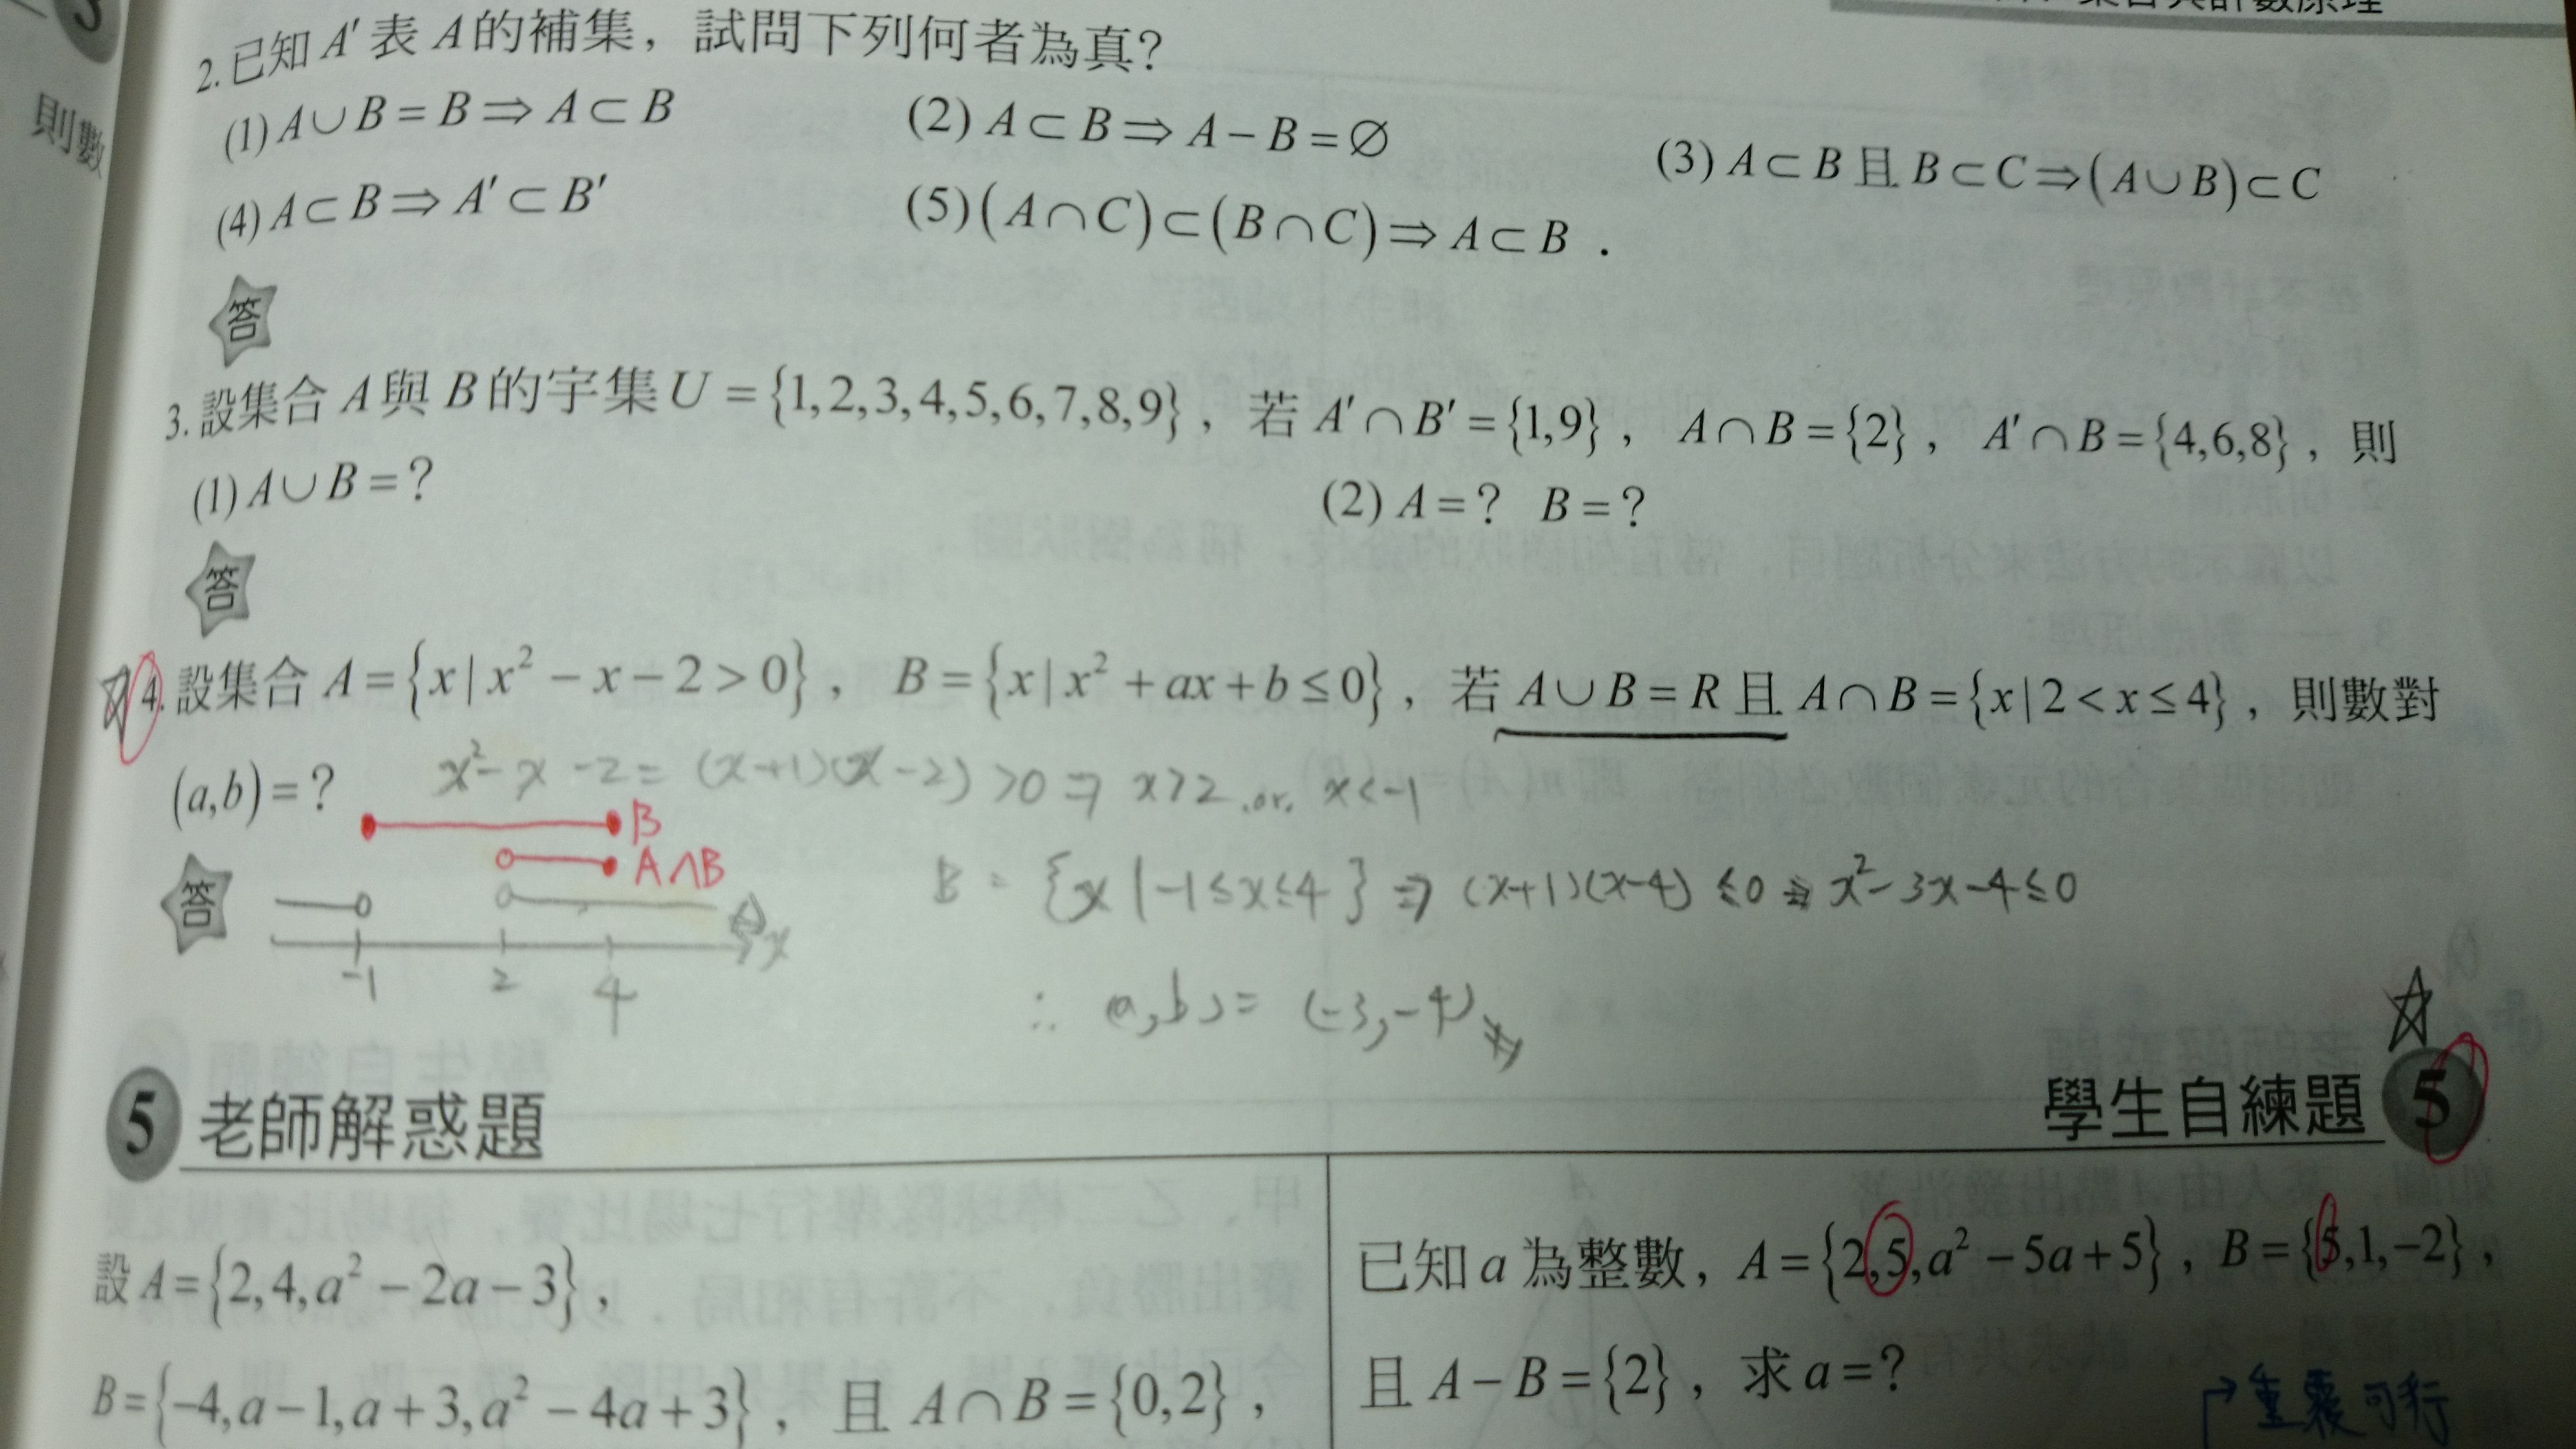 集合與計數原理
則數
2.已知 A′ 表 A 的補集，試問下列何者為真？
(1) A∪B=B⇒A⊂B (2) A⊂B⇒A−B=∅ (3) A⊂B 且 B⊂C⇒(A∪B)⊂C
(4) A⊂B⇒A′⊂B′ (5) (A∩C)⊂(B∩C)⇒A⊂B．
答
3.設集合 A 與 B 的宇集 U={1,2,3,4,5,6,7,8,9}，若 A′∩B′={1,9}，A∩B={2}，A′∩B={4,6,8}，則
(1) A∪B=？ (2) A=？ B=？
答
4.設集合 A={x|x²−x−2>0}，B={x|x²+ax+b≤0}，若 A∪B=R 且 A∩B={x|2<x≤4}，則數對
(a,b)=？ x²-x-2=(x+1)(x-2)>0⇒x>2.or.x<-1
B
A∩B
答 A B={x|-1≤x≤4}⇒(x+1)(x-4)≤0⇒x²-3x-4≤0
x
-1 2 4
∴(a,b)=(-3,-4)
5 老師解惑題 學生自練題 5
設 A={2,4,a²−2a−3}，
B={−4,a−1,a+3,a²−4a+3}，且 A∩B={0,2}，
已知 a 為整數，A={2,5,a²−5a+5}，B={5,1,−2}，
且 A−B={2}，求 a=？
重覆可行